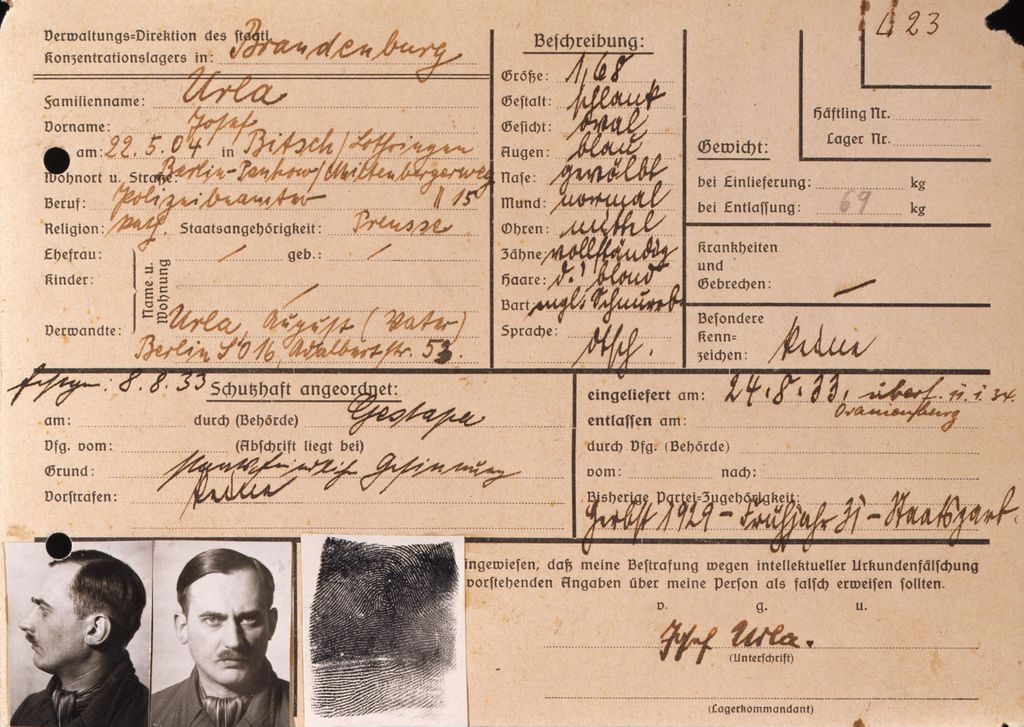 L 23
Verwaltungs-Direktion des staatl.
Konzentrationslagers in: Brandenburg
Familienname: Urla
Vorname: Josef
am: 22.5.04 in Bitsch/Lothringen
Wohnort u. Straße: Berlin-Pankow/Miltenbergerweg
Beruf: Polizeibeamter 15
Religion: kath. Staatsangehörigkeit: Preusse
Ehefrau: / geb.: /
Kinder: /
Name u. Wohnung
Verwandte: Urla, August (Vater)
Berlin SO 16, Adalbertstr. 53.
Beschreibung:
Größe: 1,68
Gestalt: schlank
Gesicht: oval
Augen: blau
Nase: gewölbt
Mund: normal
Ohren: mittel
Zähne: vollständig
Haare: d.' blond
Bart: engl. Schnurrb.
Sprache: dtsch.
Häftling Nr.
Lager Nr.
Gewicht:
bei Einlieferung: kg
bei Entlassung: 69 kg
Krankheiten
und
Gebrechen: —
Besondere
Kenn-
zeichen: keine
8.8.33 Schutzhaft angeordnet:
am: durch (Behörde) Gestapa
Vfg. vom: (Abschrift liegt bei)
Grund: staatsfeindliche Gesinnung
Vorstrafen: keine
eingeliefert am: 24.8.33, überf. 11.1.34.
entlassen am: Oranienburg
durch Vfg. (Behörde)
vom: nach:
Bisherige Partei-Zugehörigkeit:
Herbst 1929 - Frühjahr 31 - Staatspart.
ingewiesen, daß meine Bestrafung wegen intellektueller Urkundenfälschung
vorstehenden Angaben über meine Person als falsch erweisen sollten.
v. g. u.
Josef Urla.
(Unterschrift)
(Lagerkommandant)